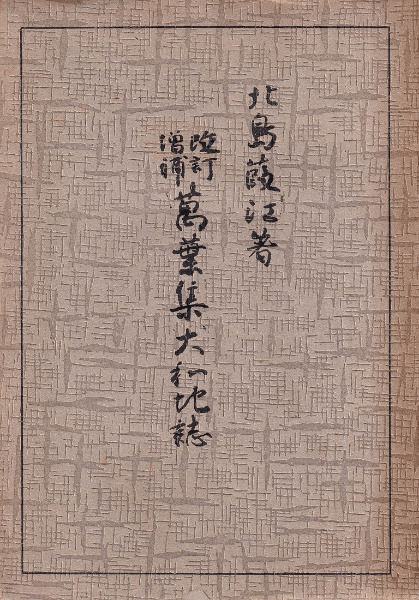 北島葭江著
改訂
增補
萬葉集大和地誌